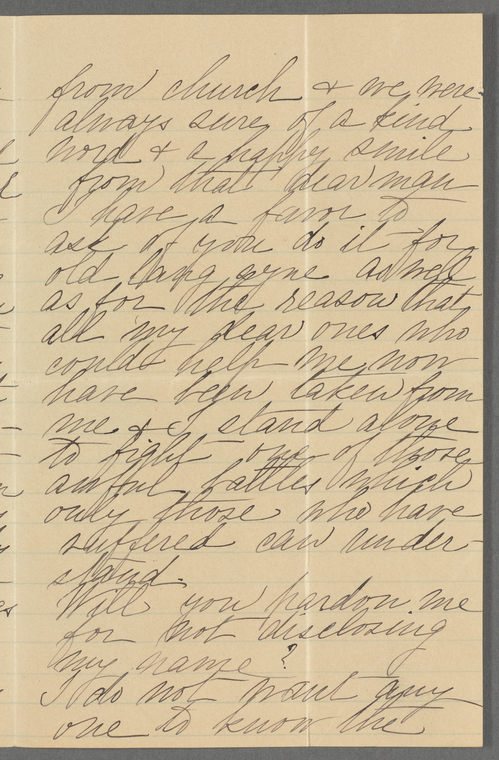 from church & we were
always sure of a kind
word & a happy smile
from that dear man
I have a favor to
ask of you do it for
old lang syne as well
as for the reason that
all my dear ones who
could help me now
have been taken from
me & I stand alone
to fight one of those
awful battles which
only those who have
suffered can under-
stand.
Will you pardon me
for not disclosing
my name?
I do not want any
one to know the